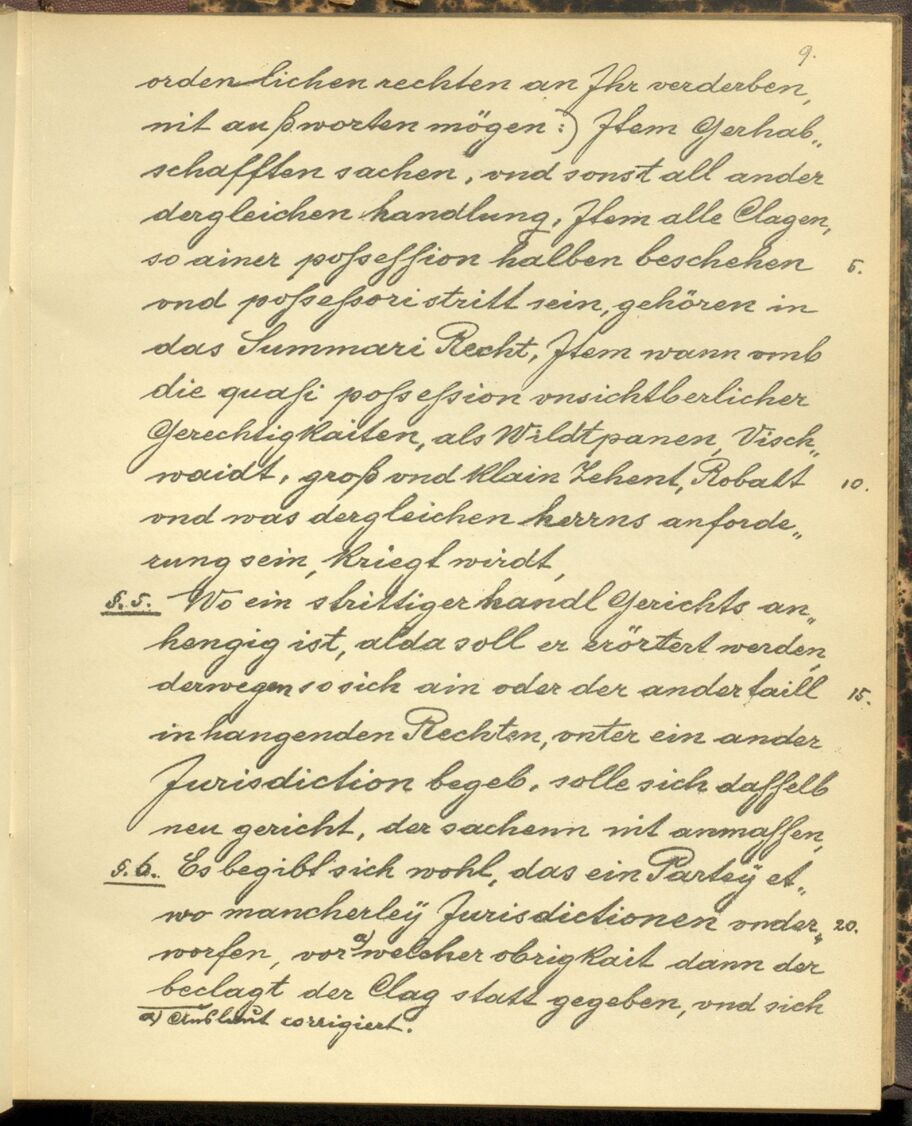 9.
ordenlichen rechten an Jhr verderben,
nit außworten mögen :) Jtem Gerhab„
schafften sachen, vnd sonst all ander
dergleichen handlung, Jtem alle Clagen,
so ainer possession halben beschehen 5.
vnd possessori stritt sein, gehören in
das Summari Recht, Jtem wann vmb
die quasi possession vnsichtberlicher
Gerechtigkaiten, als Wildtpanen, Visch„
waidt, groß vnd klain Zehent, Robatt 10.
vnd was dergleichen herrns anforde„
rung sein, kriegt wirdt,
§. 5. Wo ein strittiger handl Gerichts an„
hengig ist, alda soll er erörtert werden,
derwegen so sich ain oder der ander taill 15.
in hangenden Rechten, vnter ein ander
Jurisdiction begeb, solle sich dasselb
neu gericht, der sachenn nit anmassen,
§. 6. Es begibt sich wohl, das ein Partey et„
wo mancherleÿ Jurisdictionen vnder„ 20.
worfen, vor a) welcher obrigkait dann der
beclagt der Clag statt gegeben, vnd sich
a) Auslaut corrigiert.